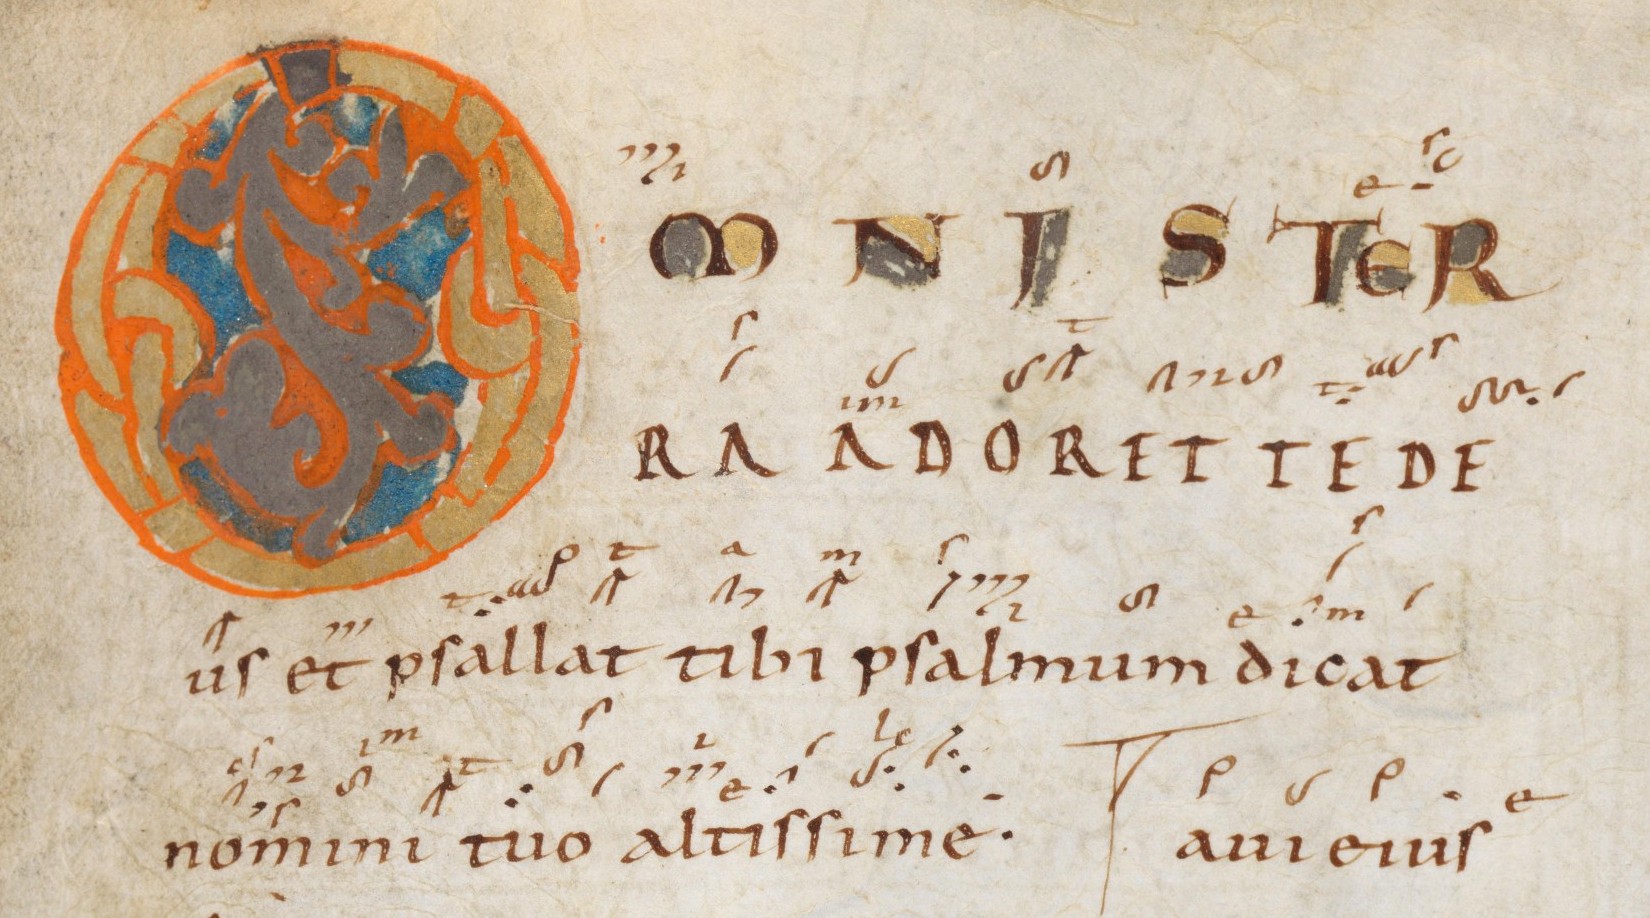 OMNIS TER
RA ADORET TE DE
us et psallat tibi psalmum dicat
nomini tuo altissime. T aui eius